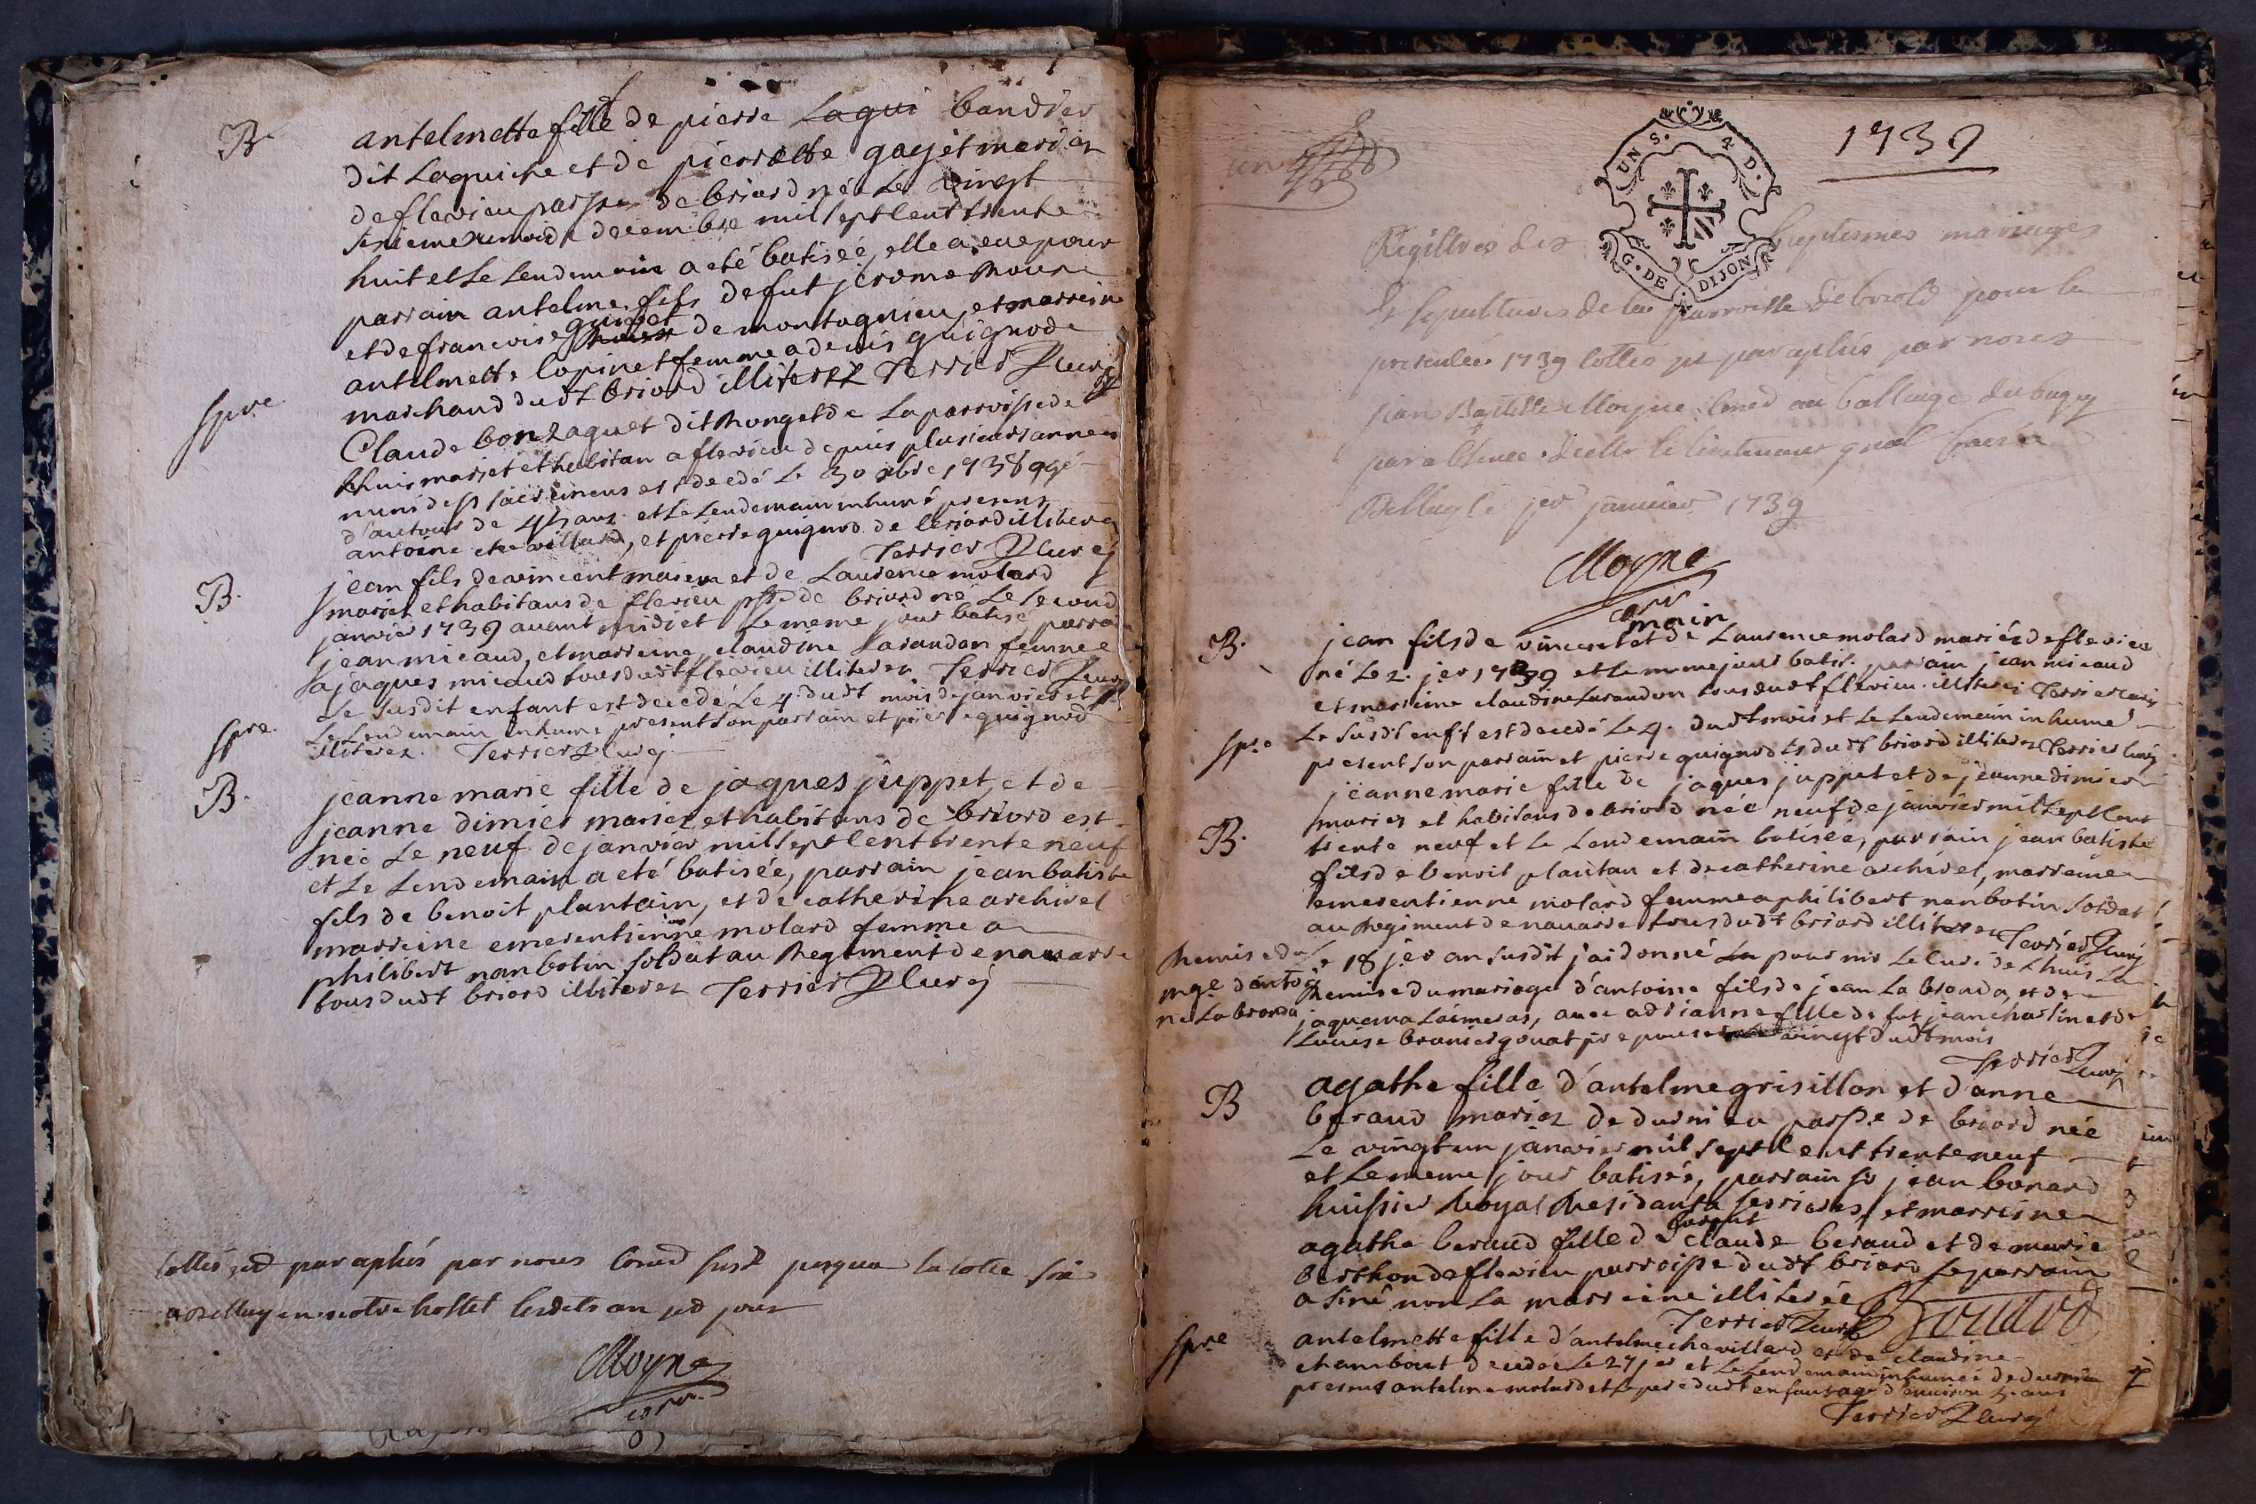 B.
antelmette fille de pierre Laqui bandier
dit Laguiche et de pierrette gayet mariez
de flevieu parsse de briord née Le vingt
sixieme du mois de decembre mil sept cent trente
huit et Le Lendemain a eté batisée, elle a eue pour
parrain antelme fils de fut jerome
et de francoise guigot de montagnieu, et marreine
antelmette lopinet femme a denis guignode
marchand dudt briord illiterez Terrier Curé
Spre
Claude bonzaguet dit monget de La parroisse de
Lhuis mariet et habitan a flevieu depuis plusieurs annees
muni des sacremens est decedé Le 30 xbre 1738 agé
d'autour de ans et Le Lendemain inhumé presens
antoine chevillard, et pierre guignod de briord illiterez
Terrier Curé
B.
jean fils de vincent main et de Laurence molard
mariez et habitans de flevieu psse de briord né Le second
janvier 1739 avant midi et Le meme jour batisé parrain
jean micaud, et marreine claudine Larandon femme
a jaques micaud tous dudt flevieu illiterez Terrier Curé
Spre
Le susdit enfant est decedé Le 4 dudt mois de janvier et
Le Lendemain inhumé present son parrain et pierre guignod
illiterez. Terrier Curé
B.
jeanne marie fille de jaques juppet, et de
jeanne dimier mariez et habitans de briord est
née Le neuf de janvier mil sept cent trente neuf
et Le Lendemain a eté batisée, parrain jean batiste
fils de benoit plantain, et de catherine archirel
marreine emerentienne molard femme a
philibert nanbotin soldat au Regiment de navarre
tous dudt briord illiterez Terrier Curé
Cottés et paraphés par nous Consd susd jusqua la cotte six
a Belley en notre hostel lesdits an et jour
Moyne
1739
UN S. 4 D.
G. DE DIJON
Registres des baptesmes mariages
et sepultures de la parroisse de briord pour la
presente 1739 cottés et paraphés par nous
jean Baptiste Moyne Consd au balliage du bugey
par absence dicelle le lieutenant gnal
Belley le jer janvier 1739
Moyne
B.
main
jean fils de vincent et de Laurence molard mariéz de flevieu
né Le 2. jer 1739 et Le meme jour batisé. parrain jean micaud
et marreine claudine Larandon tous dudt flevieu illiterez Terrier curé
Spre
Le susdt enft est decedé Le 4. dudt mois et Le Lendemain inhumé
present son parrain et pierre guignod ts dudt briord illiterez Terrier Curé
B.
jeanne marie fille de jaques juppet et de jeanne dimier
mariez et habitans de briord née neuf de janvier mil sept cent
trente neuf et Le Lendemain batisée, parrain jean batiste
fils de benoit plantan et de catherine archirel, marreine
emerentienne molard femme a philibert nanbotin soldat
au Regiment de navarre tous dudt briord illiterez
Terrier Curé
Remise du
mge d'antoi
ne La bronda
Le 18 jer an susdit j'ai donné pour mr Le Curé de Lhuis La
Remise du mariage d'antoine fils de jean La bronda, et de
jaquema Laimeras, avec adrianne fille de fut jean charlin et de
Louise vingt dudt mois
Terrier Curé
B
agathe fille d'antelme grisillon et d'anne
beraud mariez de durnieu parsse de briord née
Le vingt un janvier mil sept cent trente neuf
et Le meme jour batisée, parrain sr jean bonard
huissier Royal Residant a serrieres, et marreine
agathe beraud fille de claude beraud et de marie
berthon de flevieu parroisse dudt briord Le parrain
a siné non La marreine illiterée
Terrier Curé Bonard
Spre
antelmette fille d'antelme chevillard et de claudine
chambout decedée Le 27 jer et Le Lendemain inhumée de durnieu
presens antelme molard et Le pere dudt enfant agé d'environ ans
Terrier Curé